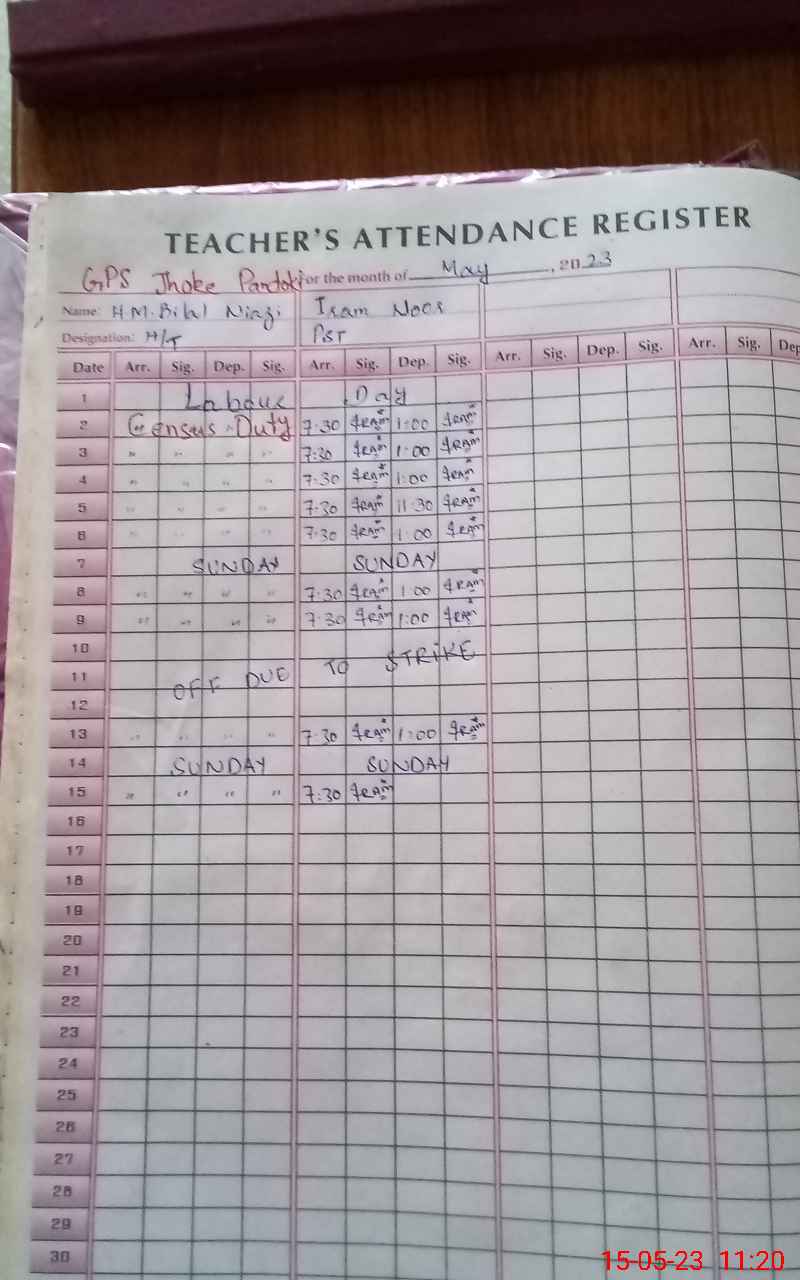 TEACHER'S ATTENDANCE REGISTER
GPS Jhoke Pandoki for the month of May, 2023
Name: H.M. Bilal Niazi Iram Noor
Designation: H/T PST
Date Arr. Sig. Dep. Sig. Arr. Sig. Dep. Sig. Arr. Sig. Dep. Sig. Arr. Sig. Dep
1 Labour Day
2 Census Duty 7:30 Iram 1:00 Iram
3 " " " " 7:30 Iram 1:00 Iram
4 " " " " 7:30 Iram 1:00 Iram
5 " " " " 7:30 Iram 11:30 Iram
6 " " " " 7:30 Iram 1:00 Iram
7 SUNDAY SUNDAY
8 " " " " 7:30 Iram 1:00 Iram
9 " " " " 7:30 Iram 1:00 Iram
10
11 OFF DUE TO STRIKE
12
13 " " " " 7:30 Iram 1:00 Iram
14 SUNDAY SUNDAY
15 " " " " 7:30 Iram
16
17
18
19
20
21
22
23
24
25
26
27
28
29
30
15-05-23 11:20